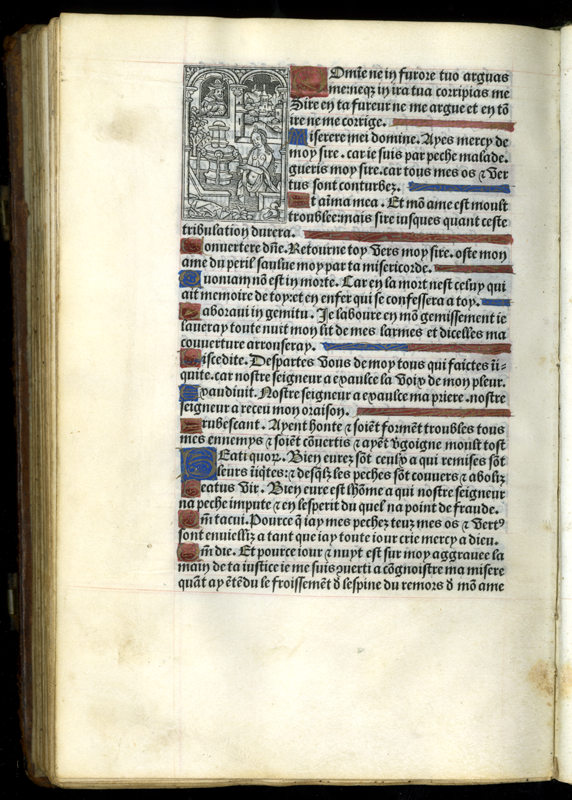 Domĩe ne in furore tuo arguas
me: neqz in ira tua corripias me
Sire en ta fureur ne me argue et en tõ
ire ne me corrige.
Miserere mei domine. Ayes mercy de
moy sire. car ie suis par peche malade.
gueris moy sire. car tous mes os ⁊ ver
tus sont conturbez.
Et aĩma mea. Et mõ ame est moult
troublee: mais sire iusques quant ceste
tribulation durera.
Conuertere dñe. Retourne toy vers moy sire. oste mon
ame du peril saulue moy par ta misericorde.
Quoniam nõ est in morte. Car en la mort nest celuy qui
ait memoire de toy: et en enfer qui se confessera a toy.
Laboraui in gemitu. Je laboure en mõ gemissement ie
laueray toute nuit mon lit de mes larmes et dicelles ma
couuerture arrouseray.
Discedite. Despartes vous de moy tous qui faictes ini-
quite. car nostre seigneur a exaulce la voix de mon pleur.
Exaudiuit. Nostre seigneur a exaulce ma priere. nostre
seigneur a receu mon oraison.
Erubescant. Ayent honte ⁊ soiẽt formẽt troubles tous
mes ennemys ⁊ soiẽt cõuertis ⁊ ayẽt vgoigne moult tost
Beati quoꝝ. Bien eurez sõt ceulx a qui remises sõt
leurs iiqtes: ⁊ desqlz les peches sõt couuers ⁊ aboliz
Beatus vir. Bien eure est lhõme a qui nostre seigneur
na peche impute ⁊ en lesperit du quel na point de fraude.
Qm̃ tacui. Pource q̃ iay mes pechez teuz mes os ⁊ vertꝰ
sont enuielliz a tant que iay toute iour crie mercy a dieu.
Qm̃ die. Et pource iour ⁊ nuyt est sur moy aggrauee la
main de ta iustice ie me suis ꝯuerti a cõgnoistre ma misere
quãt ay ẽtẽdu le froissemẽt d̃ lespine du remors d̃ mõ ame